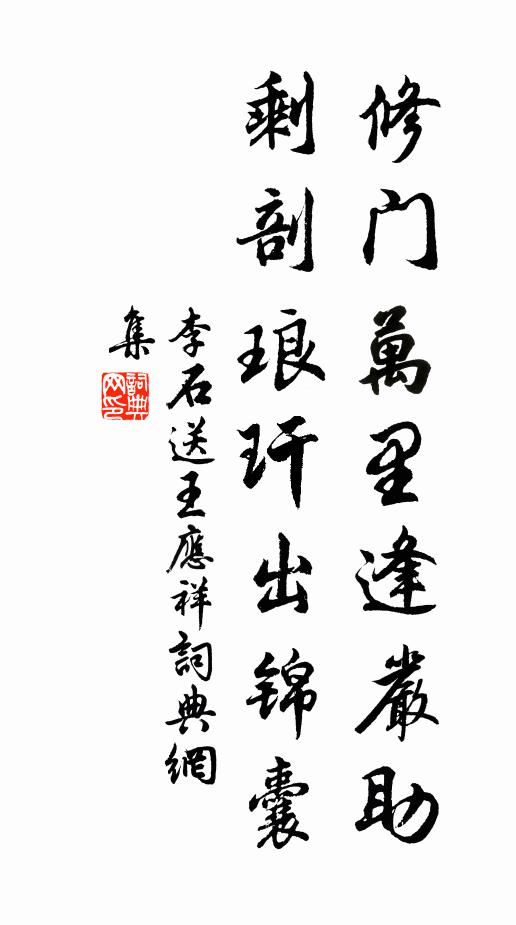 修门萬里逢嚴助
剩剖琅玕出锦囊
李石送王應祥詞典網
集
詞典网印